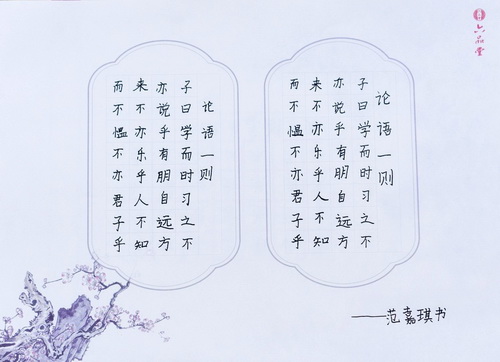 六品堂
论语一则
子曰学而时习之不
亦说乎有朋自远方
来不亦乐乎人不知
而不愠不亦君子乎
论语一则
子曰学而时习之不
亦说乎有朋自远方
来不亦乐乎人不知
而不愠不亦君子乎
——范嘉琪书